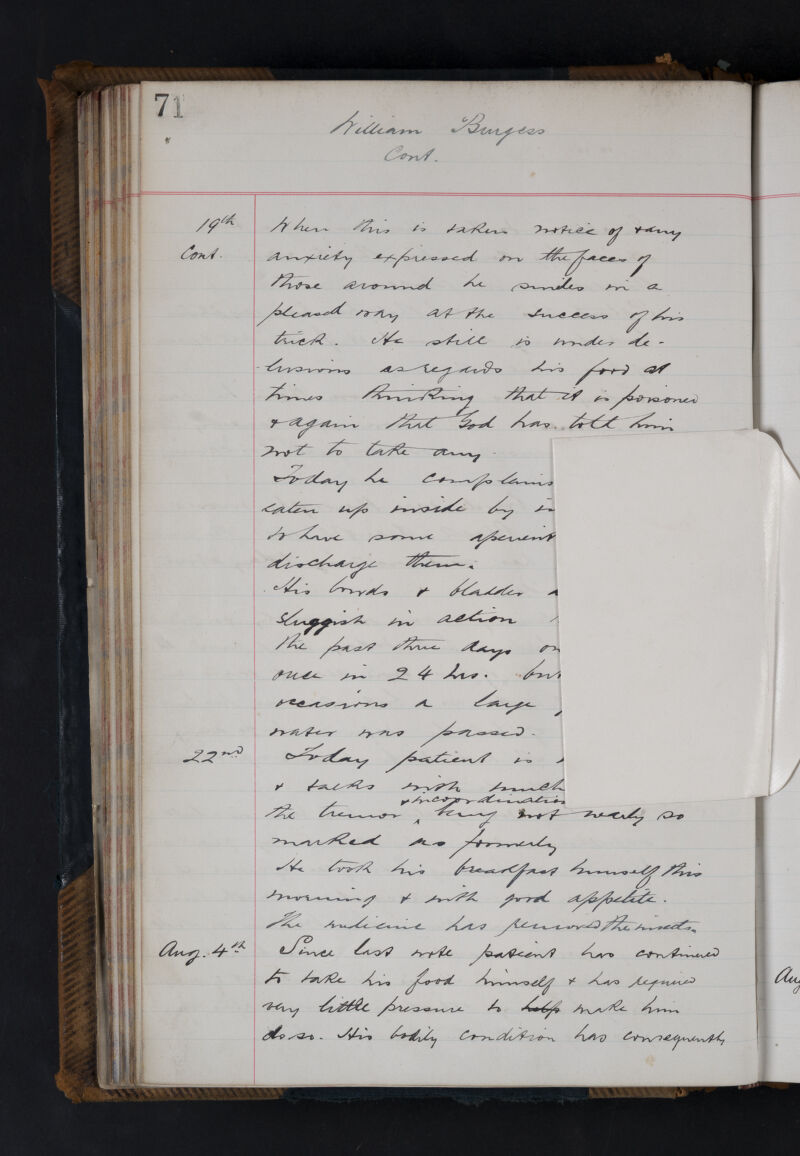 71
William Burgess
Cont.
19th When this is taken notice of & any
Cont. anxiety expressed on the faces of
those around he smiles in a
pleased way at the success of his
trick. He still is under de-
lusions as regards his food at
times thinking that it is poisoned
& again that God has told him
not to take any.
Today he complains
eaten up inside by
to have some aperient
discharge them.
His bowels & bladder
sluggish in action
the past three days on
once in 24 hrs. but
occasions a large
water was passed.
22nd Today patient is
& talks with much
& incoordination
the tremor being not nearly so
marked as formerly
He took his breakfast himself this
morning & with good appetite.
The medicine has removed the insects.
Aug. 4th Since last note patient has continued
to take his food himself & has required
very little pressure to help make him
do so. His bodily condition has consequently
Aug